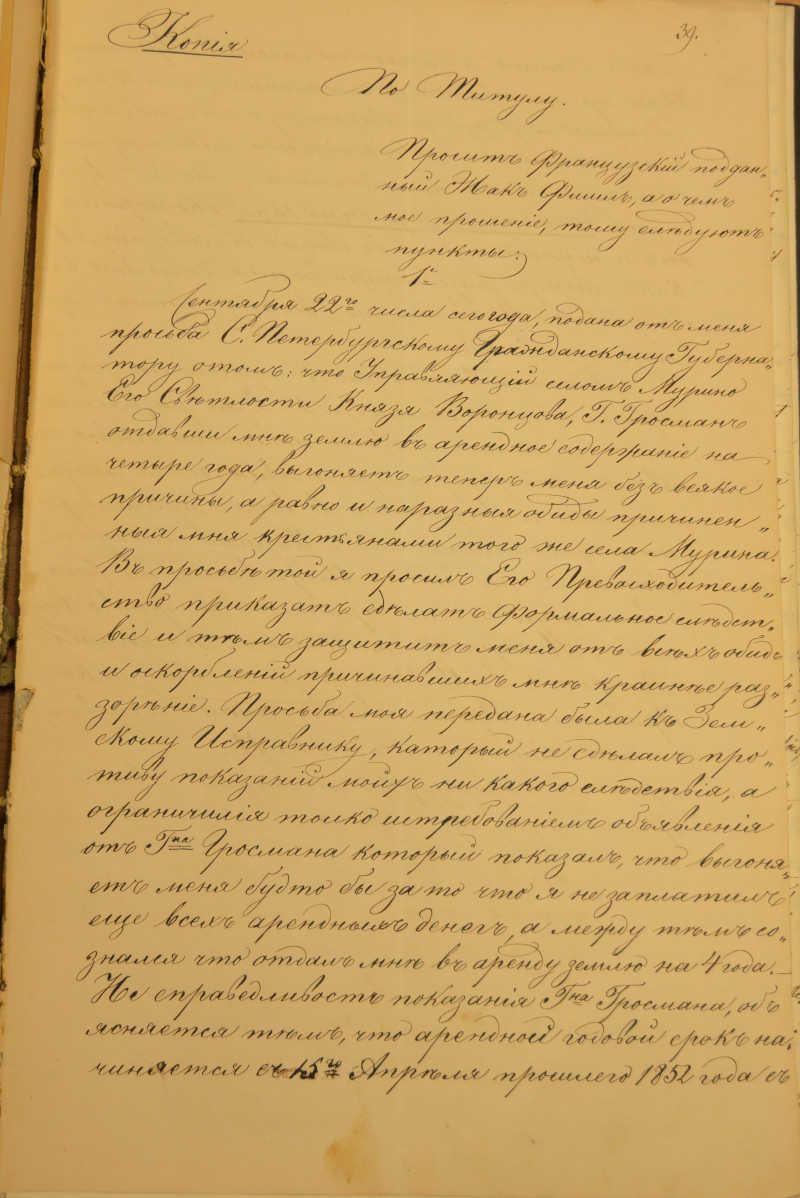 Копія
39.
По Титулу.
Проситъ Французскій поддан„
ный Жакъ Филипъ, а о чемъ
мое прошеніе, тому слѣдуютъ
пункты:
1е
Сентября 22го числа сего года, подана отъ меня
просьба С. Петербургскому Гражданскому Губерна„
тору о томъ: что Управляющій селомъ Мурино
Его Свѣтлости Князя Воронцова, Г. Гросманъ
отдавши мнѣ землю въ арендное содержаніе на
четыре года, выгоняетъ теперъ меня безъ всякое
причины, а равно и наразныя обиды причинен„
ныя мня крестьянами того же села Мурина.
Въ просьбѣ той я просилъ Его Превосходитель„
ство приказать сдѣлать формальное слѣдст„
віе и тѣмъ защитить меня отъ всѣхъ обидъ
и оскорбленій причинавшихъ мнѣ краинѣе раз„
зорѣніе. Просьба моя передана была къ Зем„
скому Исправнику, каторый не сдѣлалъ про„
тиву показаній мойхъ ни какого слѣдствія, а
ограничился толко истребованіемъ объявленія
отъ Гна Гросмана который показалъ, что выгоня„
етъ меня будто бы за то что я не заплатилъ
еще всехъ арендныхъ денегъ, а между тѣмъ со„
знался что отдалъ мнѣ въ аренду землю на 4 года.
Не справедливость показанія Гна Гросмана, объ
ясняется тѣмъ, что арендной годовой срокъ на„
чинается съ 15го Апрѣля прошлего 1852 года съ